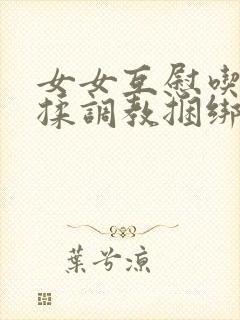 女女互慰喫
揉調教捆綁
葉兮涼